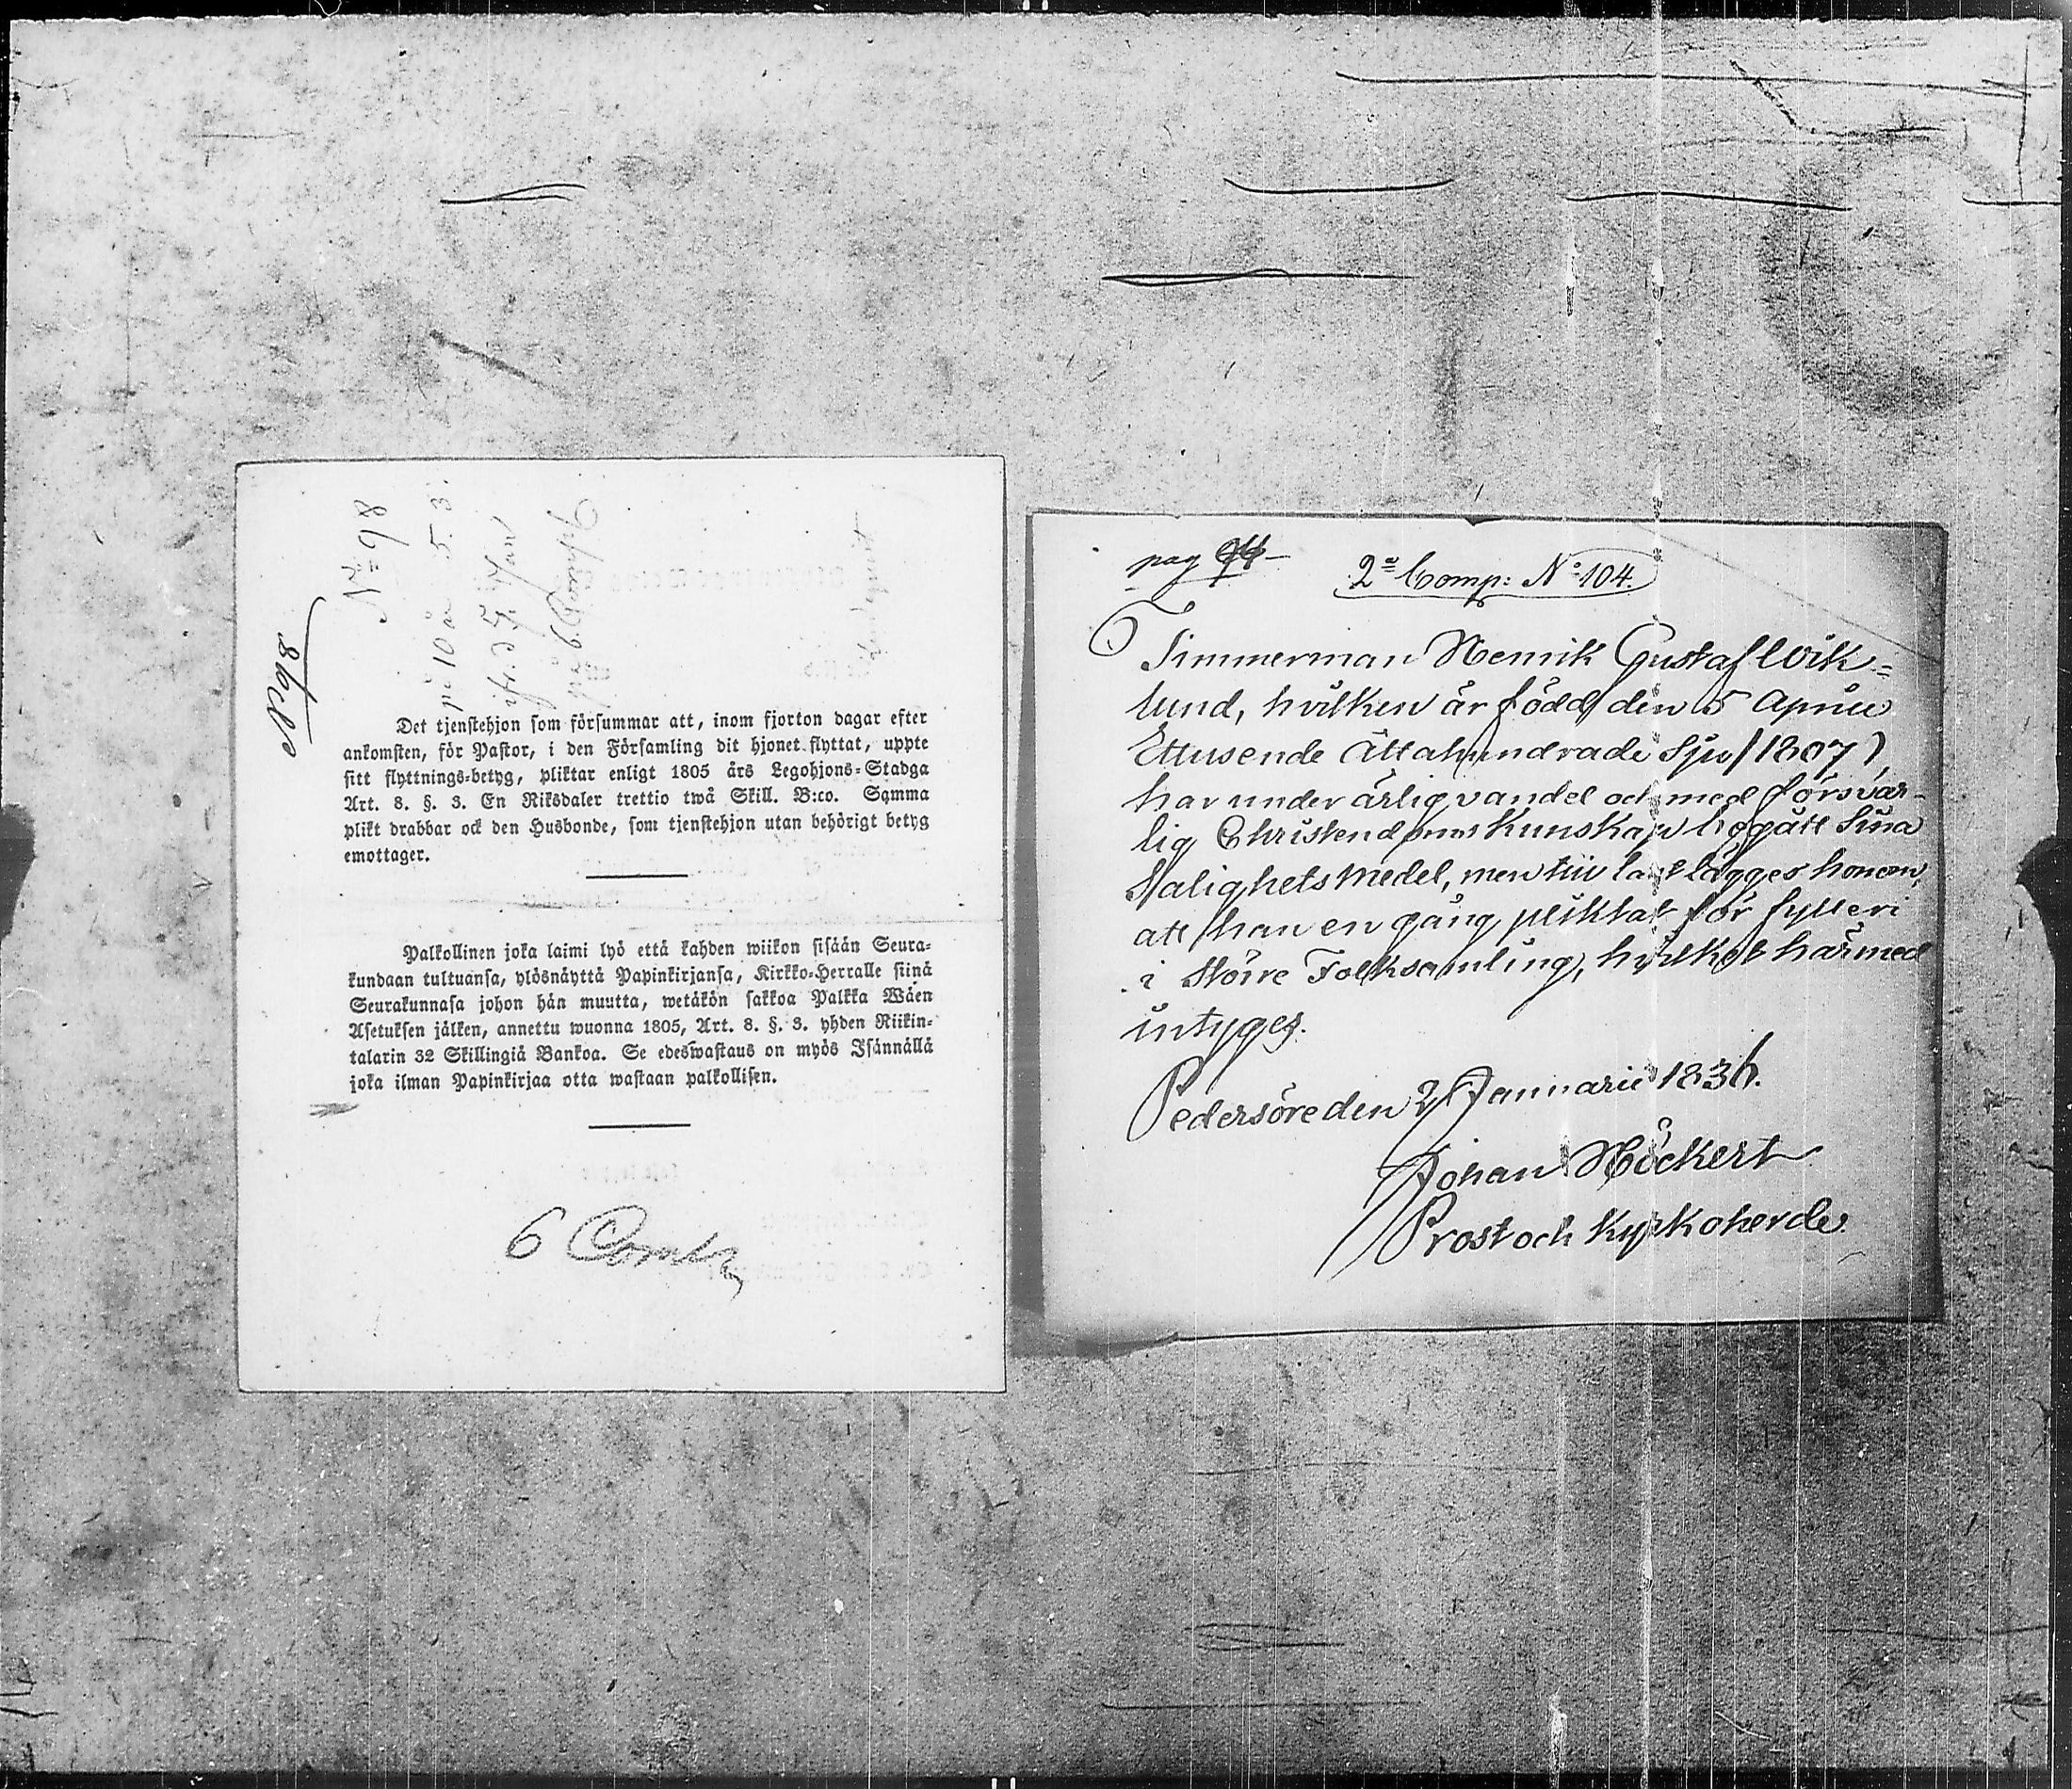 No 98
på 10 år 5. 3.
6 Comp
Det tjenstehjon som försummar att, inom fjorton dagar efter
ankomsten, för Pastor, i den Församling dit hjonet flyttat, uppte
sitt flyttnings-betyg, pliktar enligt 1805 års Legohjons-Stadga
Art. 8. §. 3. En Riksdaler trettio twå Skill. B:co. Samma
plikt drabbar ock den Husbonde, som tjenstehjon utan behörigt betyg
emottager.
Palkollinen joka laimi lyö että kahden wiikon sisään Seura-
kundaan tultuansa, ylösnäyttä Papinkirjansa, Kirkko-Herralle siinä
Seurakunnasa johon hän muutta, wetäkön sakkoa Palkka Wäen
Asetuksen jälken, annettu wuonna 1805, Art. 8. §. 3. yhden Riikin-
talarin 32 Skillingiä Bankoa. Se edeswastaus on myös Isännällä
joka ilman Papinkirjaa otta wastaan palkollisen.
6 Comp
pag
2a Comp: No 104.
Timmerman Henrik Gustaf Wik-
lund, hvilken är född den 5 April
Ettusende Åttahundrade Sju (1807)
har under ärlig vandel och med försvar-
lig Christendoms Kunskap begått Sina
Salighets Medel, men till last lägges honom,
att han en gång pliktat för fylleri
i större Folksamling, hvilket härmed
intyges.
Pedersöre den 2 Januarii 1836.
Johan Höckert
Prost och Kyrkoherde.